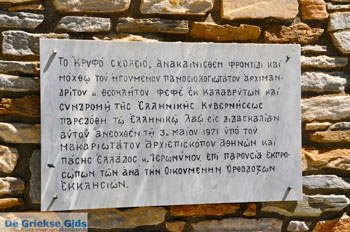 ΤΟ ΚΡΥΦΟ ΣΧΟΛΕΙΟ, ΑΝΑΚΑΙΝΙΣΘΕΝ ΦΡΟΝΤΙΔΙ ΚΑΙ
ΜΟΧΘΩ ΤΟΥ ΗΓΟΥΜΕΝΟΥ ΠΑΝΟΣΙΟΛΟΓΙΩΤΑΤΟΥ ΑΡΧΙΜΑΝ-
ΔΡΙΤΟΥ κ. ΘΕΟΚΛΗΤΟΥ ΦΕΦΕ ΕΚ ΚΑΛΑΒΡΥΤΩΝ ΚΑΙ
ΣΥΝΔΡΟΜῌ ΤΗΣ ΕΛΛΗΝΙΚΗΣ ΚΥΒΕΡΝΗΣΕΩΣ
ΠΑΡΕΔΟΘΗ ΤΩ ΕΛΛΗΝΙΚΩ ΛΑΩ ΕΙΣ ΔΙΔΑΣΚΑΛΙΑΝ
ΑΥΤΟΥ ΑΝΕΩΧΘΕΝ ΤΗ 3. ΜΑΙΟΥ 1971 ΥΠΟ ΤΟΥ
ΜΑΚΑΡΙΩΤΑΤΟΥ ΑΡΧΙΕΠΙΣΚΟΠΟΥ ΑΘΗΝΩΝ ΚΑΙ
ΠΑΣΗΣ ΕΛΛΑΔΟΣ κ. ΙΕΡΩΝΥΜΟΥ, ΕΠΙ ΠΑΡΟΥΣΙΑ ΕΚΠΡΟ-
ΣΩΠΩΝ ΤΩΝ ΑΝΑ ΤΗΝ ΟΙΚΟΥΜΕΝΗΝ ΟΡΘΟΔΟΞΩΝ
ΕΚΚΛΗΣΙΩΝ.
De Griekse Gids